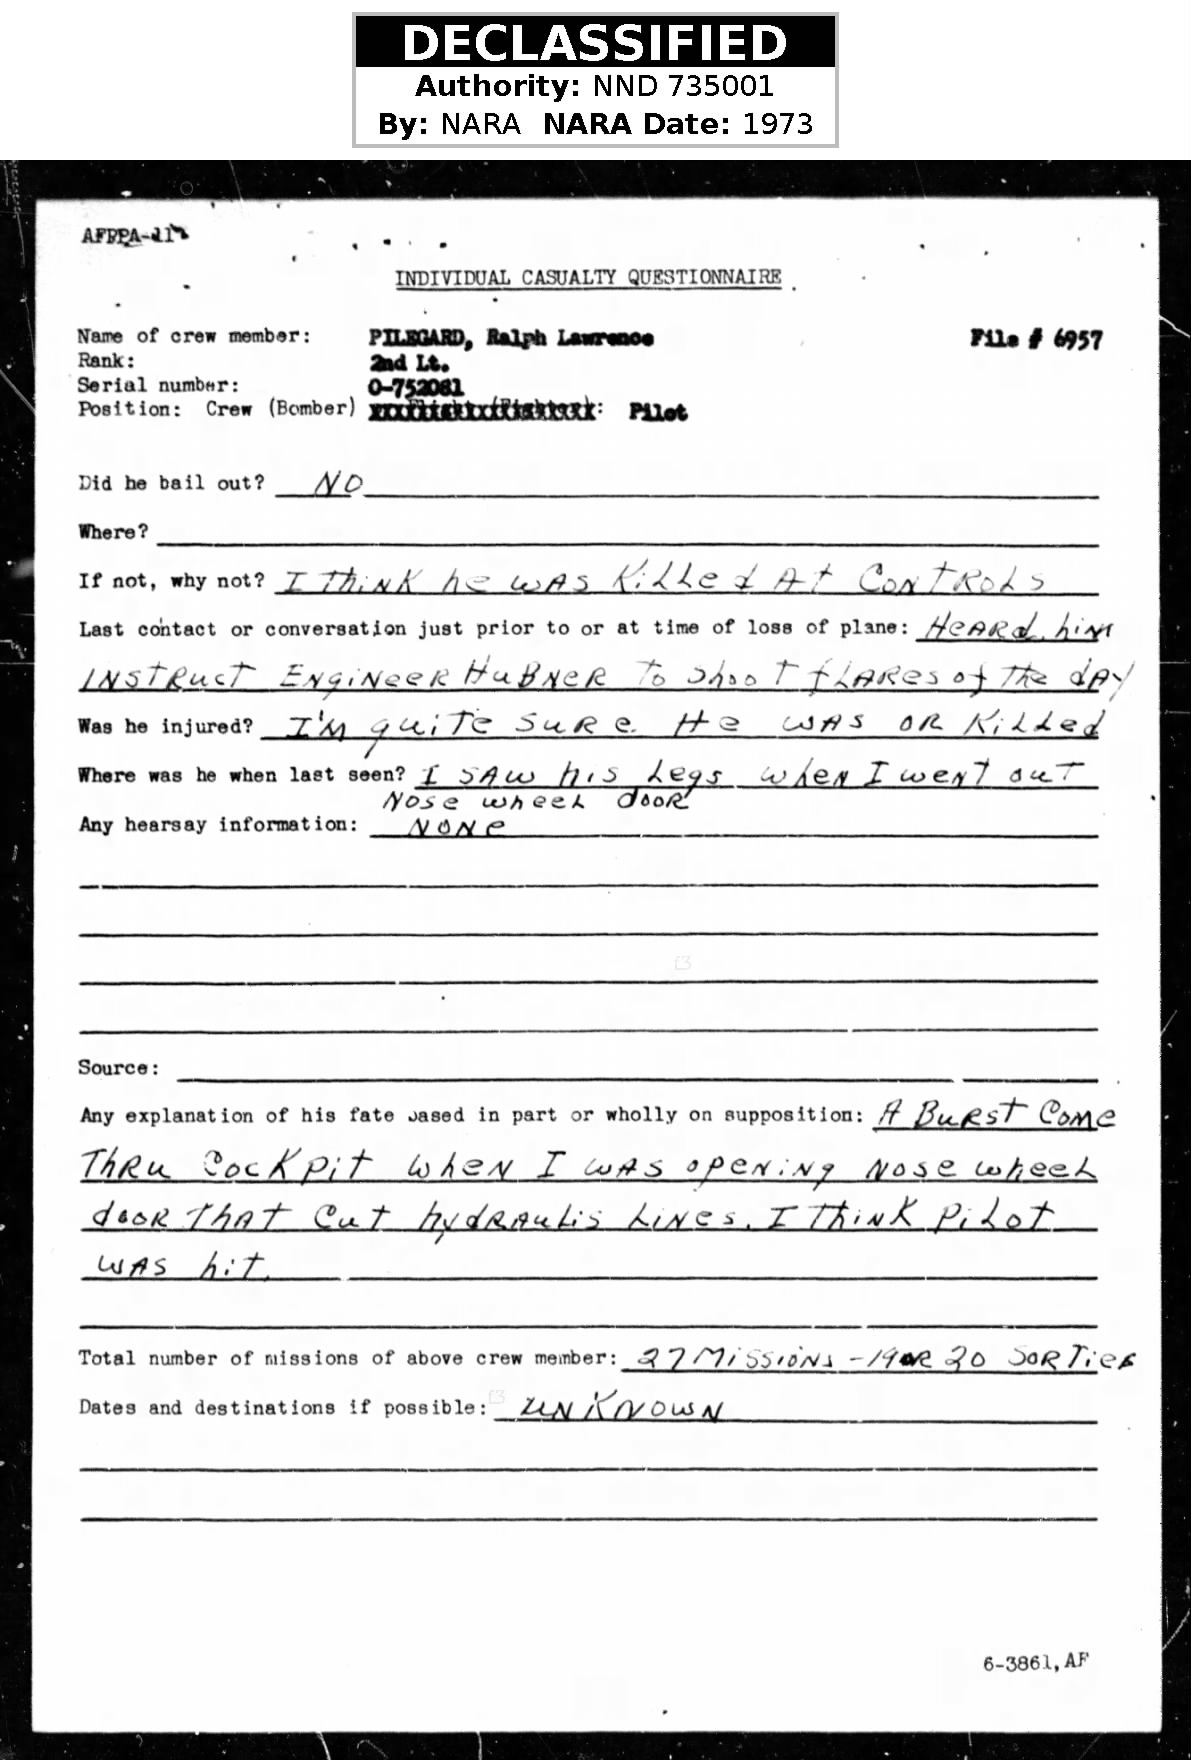 DECLASSIFIED
Authority: NND 735001
By: NARA NARA Date: 1973
AFPPA-11
INDIVIDUAL CASUALTY QUESTIONNAIRE
Name of crew member: PILEGARD, Ralph Lawrence File # 6957
Rank: 2nd Lt.
Serial number: O-752081
Position: Crew (Bomber) Pilot
Did he bail out? NO
Where?
If not, why not? I THINK he WAS KiLLed At CONTROLS
Last contact or conversation just prior to or at time of loss of plane: HEARd him
INSTRUCT ENGiNEER HUBNER To Shoot fLARes of The dAy
Was he injured? I'M quiTe SuRe. He WAS OR KiLLed
Where was he when last seen? I SAW his Legs when I went out
Nose wheeL dooR
Any hearsay information: NONe
Source:
Any explanation of his fate based in part or wholly on supposition: A BuRST Come
ThRu CocKpit when I was opening Nose wheeL
dooR ThAT Cut hydRAuLis LiNes. I ThiNK PiLot
WAS hit.
Total number of missions of above crew member: 27 MiSSiONs - 19 OR 20 SoRTies
Dates and destinations if possible: UNKNOWN
6-3861, AF